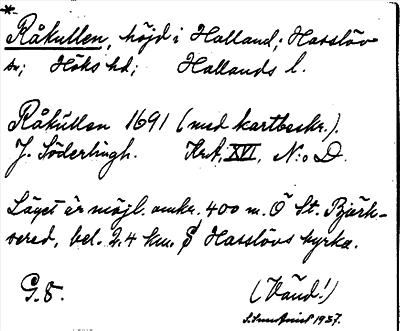 *
Råkullen, höjd i Halland; Hasslöv
sn; Höks hd; Hallands l.
Råkullen 1691 (med kartbeskr.).
J. Söderlingh. Krt. XVI, N:o D.
Läget är möjl. omkr. 400 m. Ö St. Björk-
ered, bel. 2,4 km. S Hasslövs kyrka.
G. 8. (Vänd!)
1937.